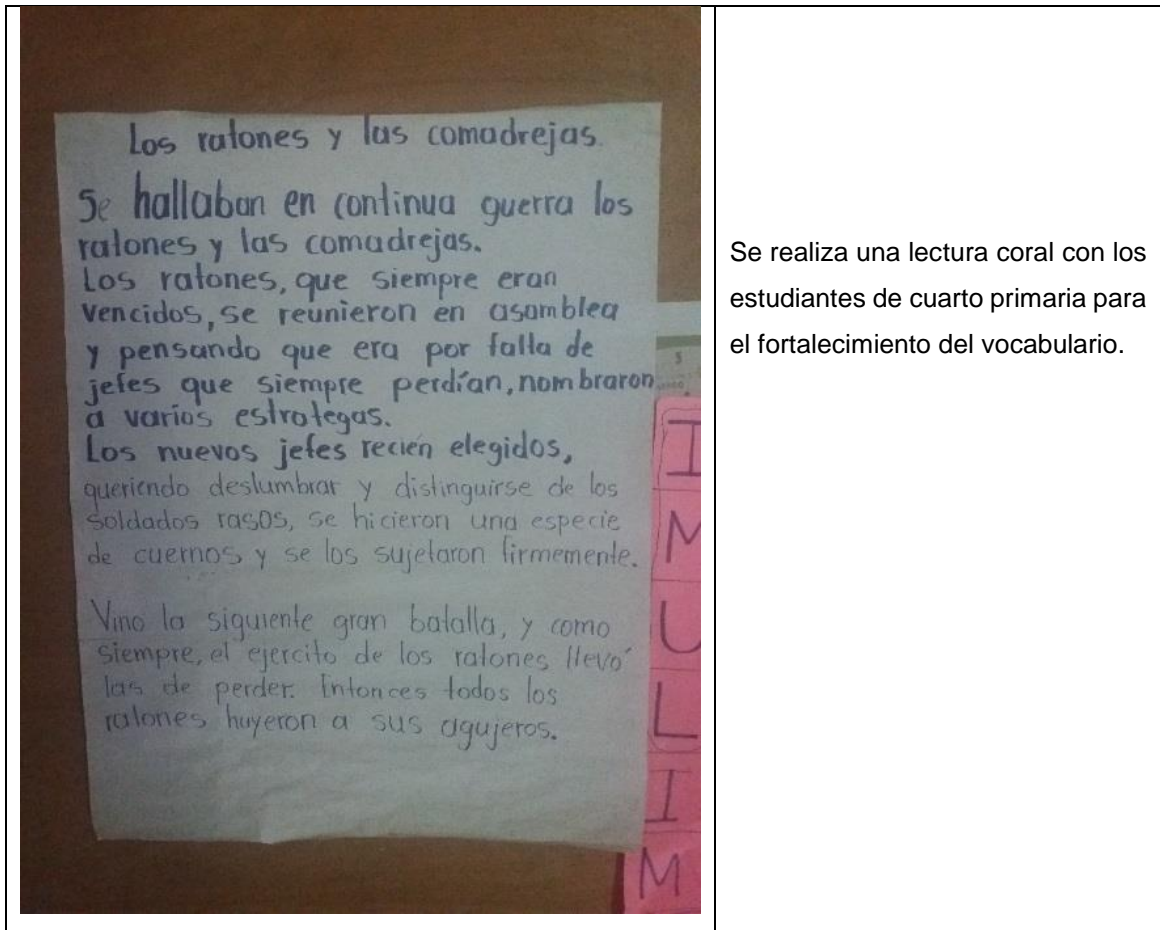 Los ratones y las comadrejas.
Se hallaban en continua guerra los
ratones y las comadrejas.
Los ratones, que siempre eran
vencidos, se reunieron en asamblea
y pensando que era por falta de
jefes que siempre perdían, nombraron
a varios estrategas.
Los nuevos jefes recién elegidos,
queriendo deslumbrar y distinguirse de los
soldados rasos, se hicieron una especie
de cuernos y se los sujetaron firmemente.
Vino la siguiente gran batalla, y como
siempre, el ejercito de los ratones llevó
las de perder. Entonces todos los
ratones huyeron a sus agujeros.
I
M
U
L
I
M
Se realiza una lectura coral con los
estudiantes de cuarto primaria para
el fortalecimiento del vocabulario.